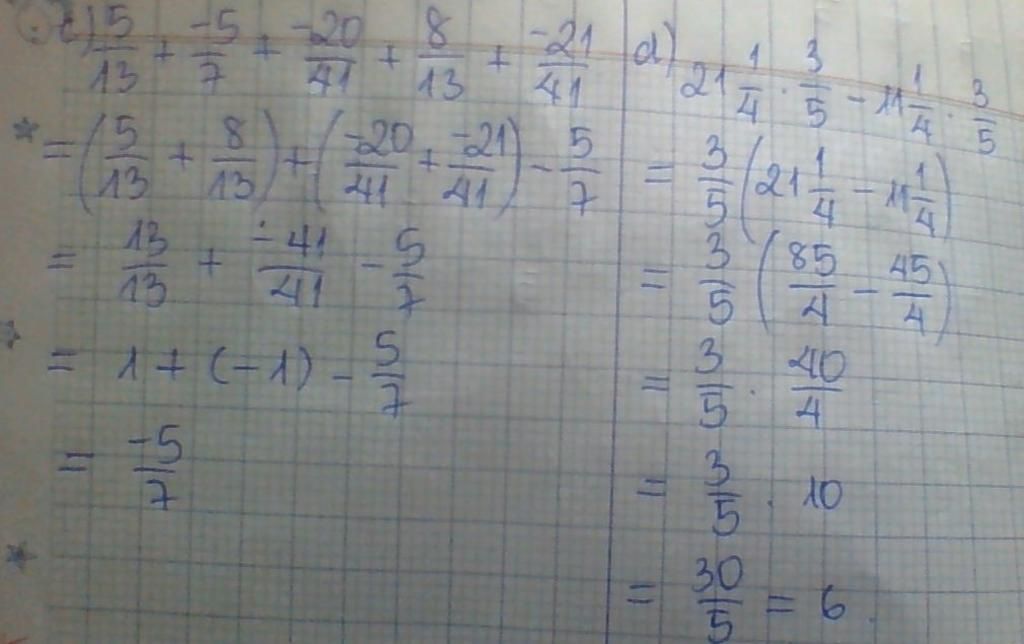 c) 5/13 + -5/7 + -20/41 + 8/13 + -21/41
= (5/13 + 8/13) + (-20/41 + -21/41) - 5/7
= 13/13 + -41/41 - 5/7
= 1 + (-1) - 5/7
= -5/7
d) 21 1/4 · 3/5 - 11 1/4 · 3/5
= 3/5 (21 1/4 - 11 1/4)
= 3/5 (85/4 - 45/4)
= 3/5 · 40/4
= 3/5 · 10
= 30/5 = 6.